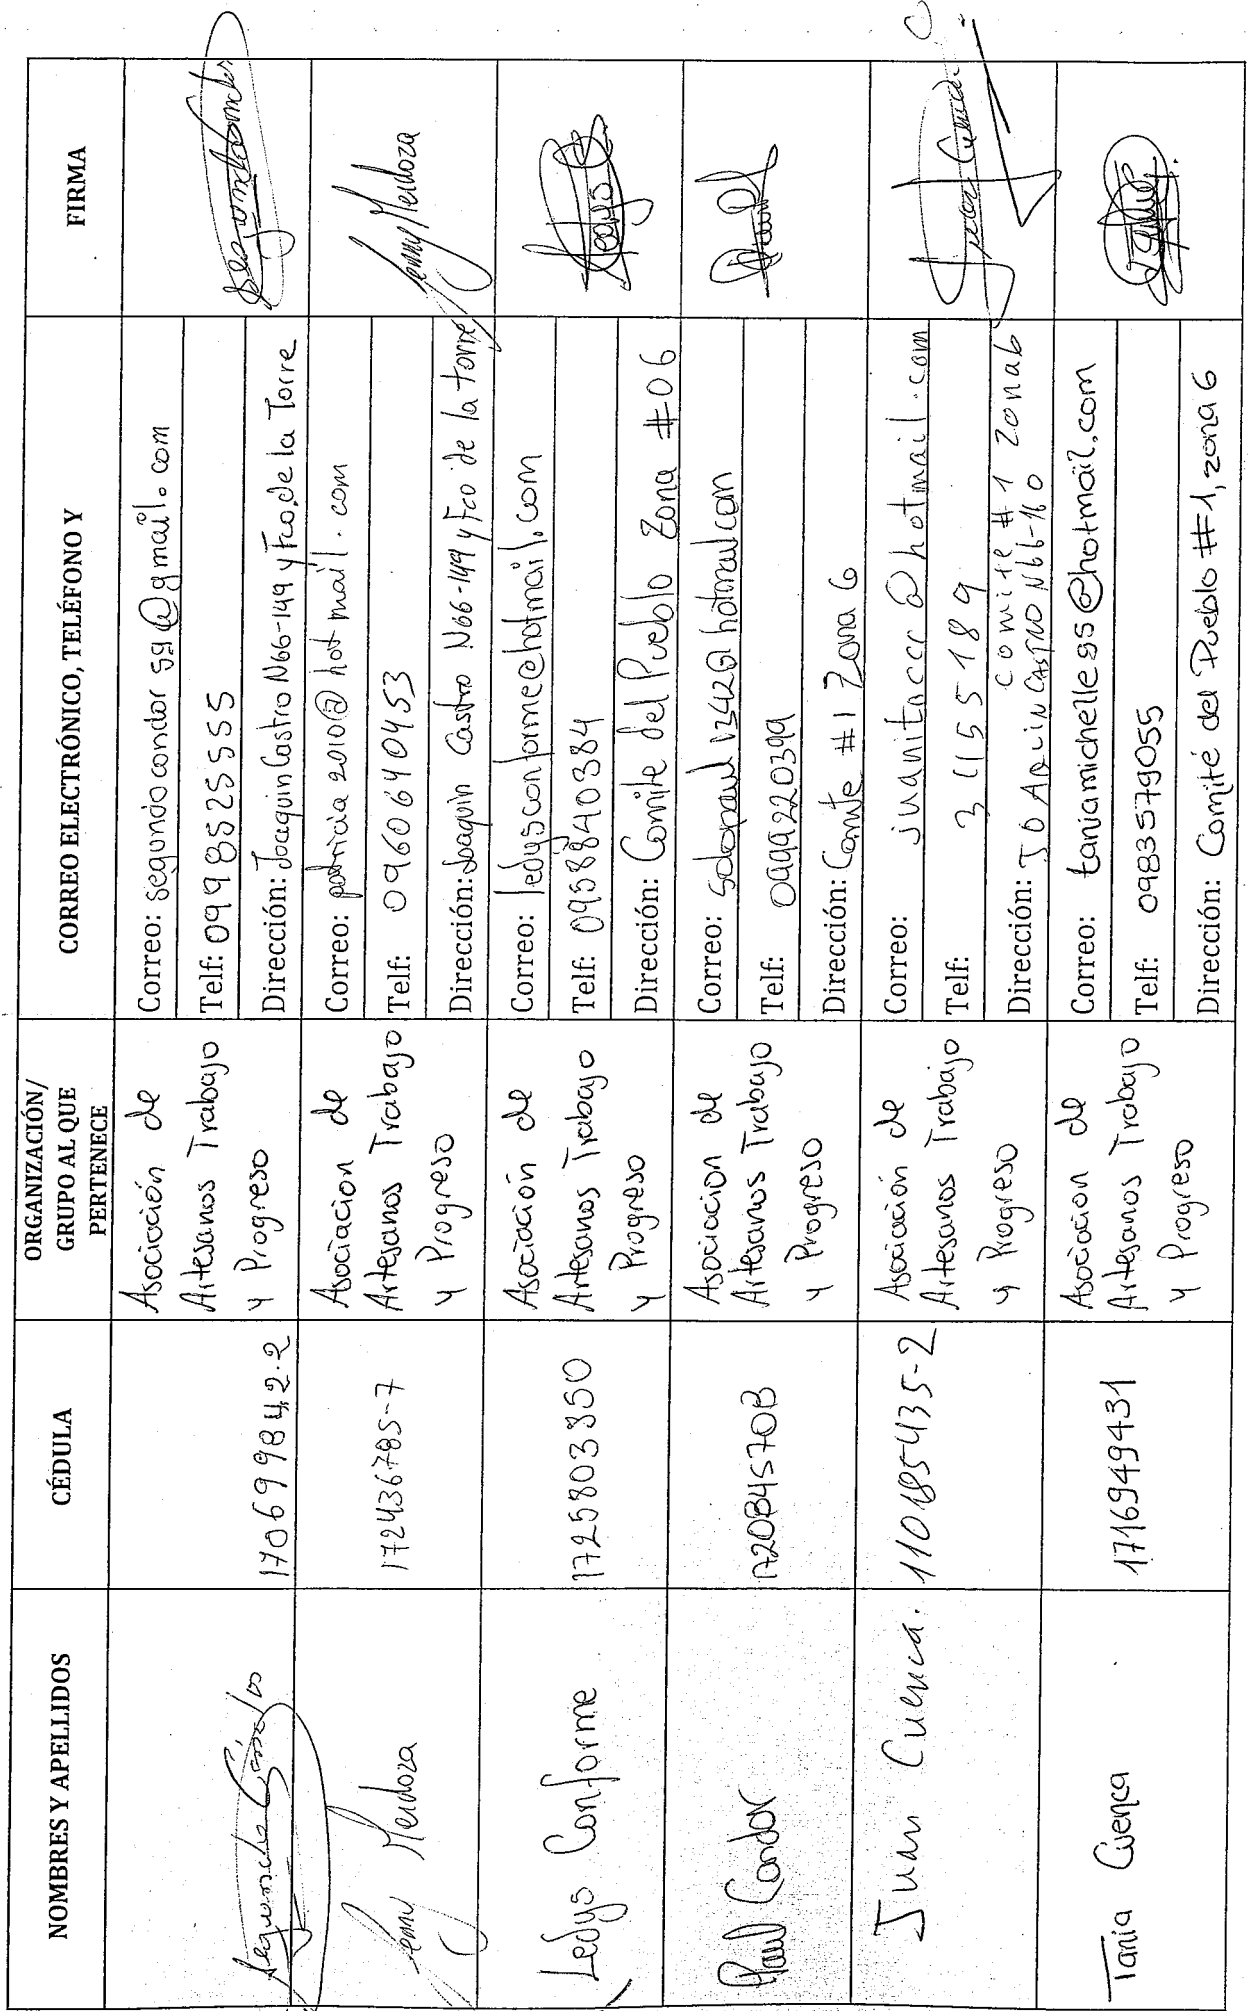 NOMBRES Y APELLIDOS
CÉDULA
ORGANIZACIÓN/
GRUPO AL QUE
PERTENECE
CORREO ELECTRÓNICO, TELÉFONO Y
FIRMA
170699842-2
Asociación de
Artesanos Trabajo
y Progreso
Correo: segundo condor 59@gmail.com
Telf: 0998525555
Dirección: Joaquin Castro N66-149 y Fco. de la Torre
Jenny Mendoza
172436785-7
Asociacion de
Artesanos Trabajo
y Progreso
Correo: patricia 2010@hotmail.com
Telf: 0960640453
Dirección: Joaquin Castro N66-149 y Fco de la torre
Jenny Mendoza
Ledys Conforme
1725803350
Asociación de
Artesanos Trabajo
y Progreso
Correo: ledysconforme@hotmail.com
Telf: 0958840384
Dirección: Comite del Pueblo Zona #06
Paul Condor
Asociacion de
Artesanos Trabajo
y Progreso
Correo:
Telf: 0999220399
Dirección: Comite #1 Zona 6
Juan Cuenca.
110185435-2
Asociación de
Artesanos Trabajo
y Progreso
Correo: juanitoccc@hotmail.com
Telf: 3115189
comite #1 Zona 6
Dirección: JOAQUIN CASTRO N66-160
Juan Cuenca
Tania Cuenca
1716949431
Asociacion de
Artesanos Trabajo
y Progreso
Correo: taniamichelle95@hotmail.com
Telf: 0983579055
Dirección: Comité del Pueblo #1, zona 6